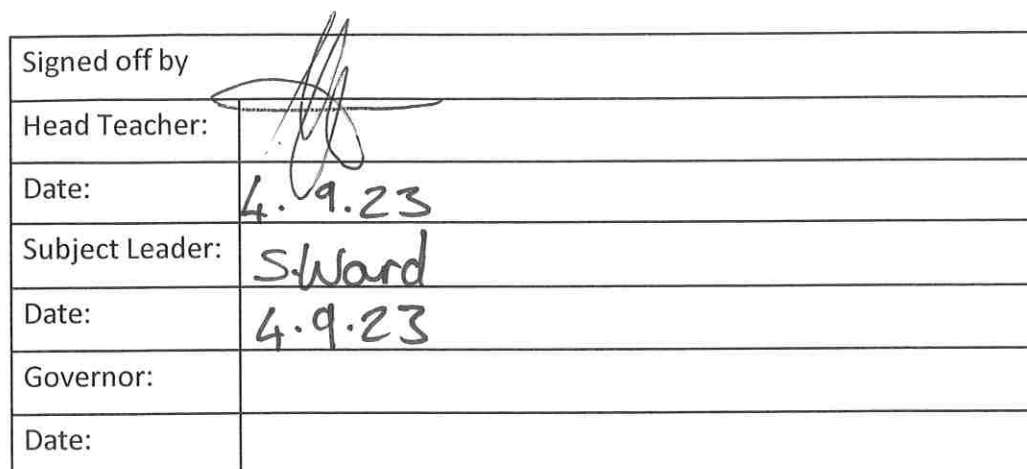 Signed off by
Head Teacher:
Date: 4.9.23
Subject Leader: S.Ward
Date: 4.9.23
Governor:
Date: